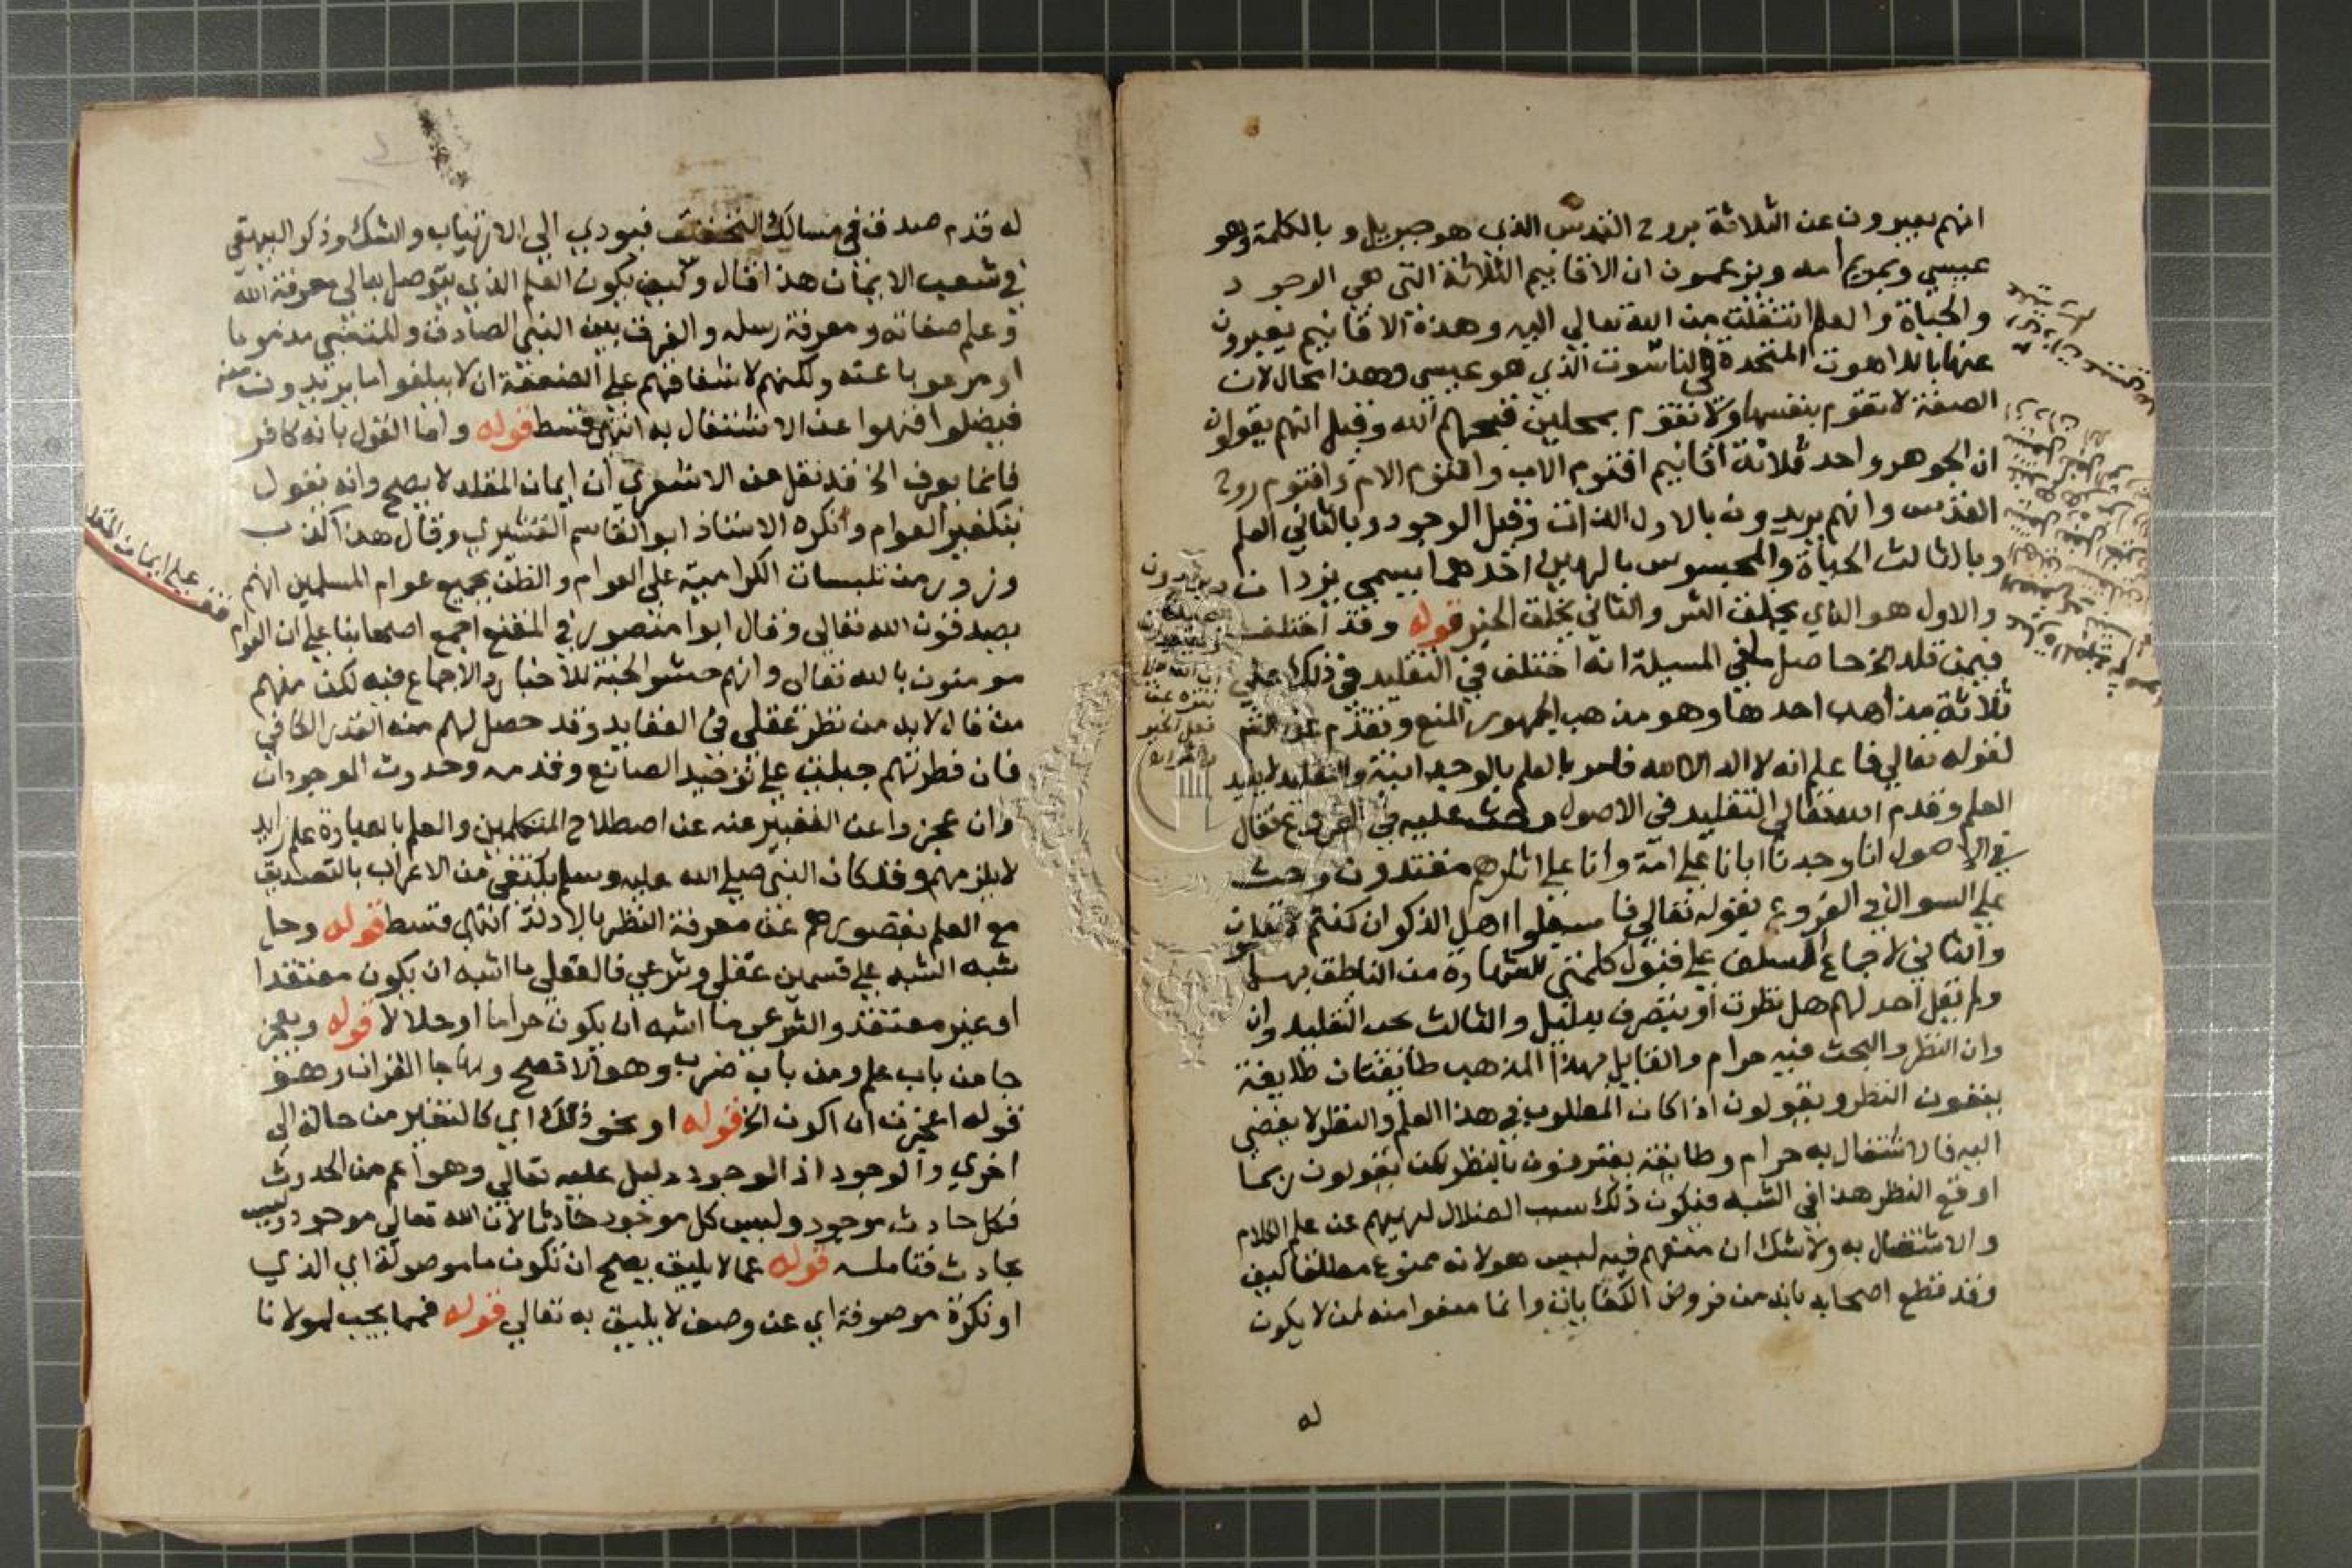 انهم يعبرون عن الثلاثة بروح القدس الذي هو جبريل وبالكلمة وهو
عيسي وبمريم امه ويزعمون ان الاقانيم الثلاثة التي هي الوجود
والحياة والعلم انتقلت من الله تعالي اليه وهذه الاقانيم يعبرون
عنها باللاهوت المتحدة في الناسوت الذي هو عيسي وهذا محال لان
الصفة لا تقوم بنفسها ولا تقوم بمحلين قبحهم الله وقيل انهم يقولون
ان الجوهر واحد ثلاثة اقانيم اقنوم الاب واقنوم الام واقنوم روح
القدس وانهم يريدون بالاول الذات وقيل الوجود وبالثاني العلم
وبالثالث الحياة والمجوس بالهين احدهما يسمي يزدان
والاول هو الذي يخلق الشر والثاني يخلق الخير قوله وقد اختلف
فيمن قلد الخ حاصل ما في المسيلة انه اختلف في التقليد في ذلك علي
ثلاثة مذاهب احدها وهو مذهب الجمهور المنع وتقدم
لقوله تعالي فاعلم انه لا اله الا الله فامر بالعلم بالوحدانية والتقليد لا يفيد
العلم وقد ذم الله تعالي التقليد في الاصول وحث عليه في الفروع فقال
في الاصول انا وجدنا ابانا علي امة وانا علي اثارهم مقتدون وحث
علي السوال في الفروع بقوله تعالي فاسيلوا اهل الذكر ان كنتم لا تعلمون
والثاني لاجماع السلف علي قبول كلمتي الشهادة من الناطق بهما
ولم يقل احد لهم هل نظرت او تبصرت بدليل والثالث يجب التقليد وان
وان النظر والبحث فيه حرام والقايل بهذا المذهب طايفتان طايفة
ينفون النظر ويقولون اذا كان المطلوب في هذا العلم والنظر لا يفضي
اليه فالاشتغال به حرام وطايفة يعترفون بالنظر لكن يقولون ربما
اوقع النظر هذا في الشبه فيكون ذلك سبب الضلال لنهيهم عن علم الكلام
والاشتغال به ولا شك ان منعهم فيه ليس هو لانه ممنوع مطلقا كيف
وقد قطع اصحابه بانه من فروض الكفايات وانما منعوا منه لمن لا يكون
له
له قدم صدق في مسالك التحقيق فيودي الي الارتياب والشك وذكر البيهقي
في شعب الايمان هذا قال وكيف يكون العلم الذي يتوصل به الي معرفة الله
وعلم صفاته ومعرفة رسله والفرق بين النبي الصادق والمتنبي مذموما
او مرغوبا عنه ولكنهم لاشفاقهم علي الضعفة ان لا يبلغوا ما يريدون منه
فيضلوا فنهوا عن الاشتغال به انتهي قسط قوله واما القول بانه كافر
فانما يعرف الخ قد نقل عن الاشعري ان ايمان المقلد لا يصح وانه يقول
بتكفير العوام وانكره الاستاذ ابو القاسم القشيري وقال هذا كذب
وزور من تلبسات الكرامية علي العوام والظن بجميع عوام المسلمين انهم
يصدقون الله تعالي وقال ابوا منصور في المقنع اجمع اصحابنا علي ان العوام
مومنون بالله تعالي وانهم حشو الجنة للاخبار والاجماع فيه لكن منهم
من قال لابد من نظر عقلي في العقايد وقد حصل لهم منه القدر الكافي
فان فطرتهم جبلت علي توحيد الصانع وقدمه وحدوث الموجودات
وان عجزوا عن التعبير عنه عن اصطلاح المتكلمين والعلم بالعبارة علم زايد
لا يلزمهم وقد كان النبي صلي الله عليه وسلم يكتفي من الاعراب بالتصديق
مع العلم بقصورهم عن معرفة النظر بالادلة انتهي قسط قوله وحل
شبه الشبه علي قسمين عقلي وشرعي فالعقلي ما اشبه ان يكون معتقدا
او غير معتقد والشرعي ما اشبه ان يكون حراما او حلالا قوله ويعجز
جا من باب علم ومن باب ضرب وهو الافصح وبها جا القران وهو
قوله اعجزت ان اكون الخ قوله او نحو ذلك اي كالتغير من حالة الي
اخري والوجود اذ الوجود دليل عليه تعالي وهو اعم من الحدوث
فكل حادث موجود وليس كل موجود حادثا لان الله تعالي موجود وليس
بحادث فتامله قوله عما لا يليق يصح ان تكون ما موصولة اي الذي
او نكرة موصوفة اي عن وصف لا يليق به تعالي قوله فمما يجب لمولانا
قف علي ايمان المقلد